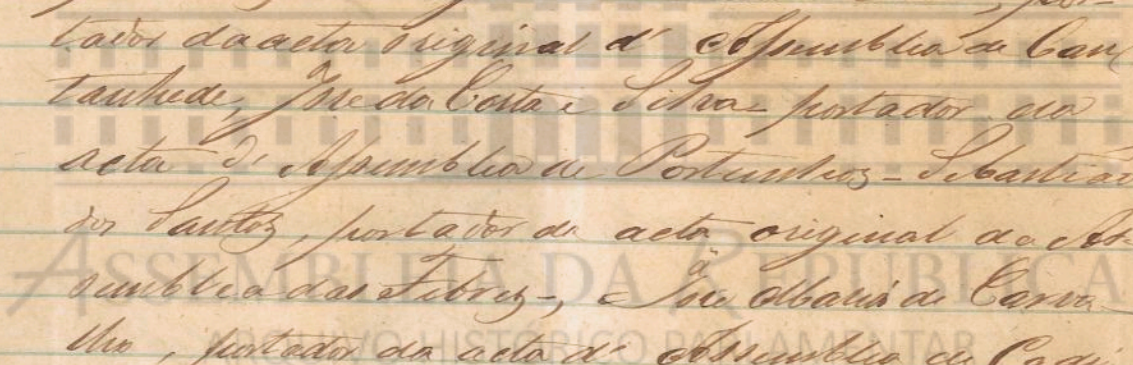 por-
tador da acta original d' Assemblea de Can
tanhede, Jose da Costa e Silva - portador da
acta d' Assemblea de Portunhos - Sebastião
dos Santos, portador da acta original da As-
semblea das Febres -, e Jose Maria de Carva
ASSEMBLEIA DA REPÚBLICA
lho, portador da acta d' Assemblea de Cadi
ARQUIVO HISTÓRICO PARLAMENTAR